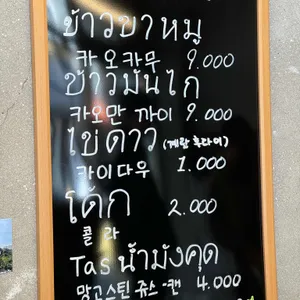 ข้าวขาหมู
카오카무 9.000
ข้าวมันไก่
카오만 까이 9.000
ไข่ดาว (계란 후라이)
카이다우 1.000
โค้ก 2.000
콜라
Tas น้ำมังคุด
망고스틴 쥬스-캔 4.000